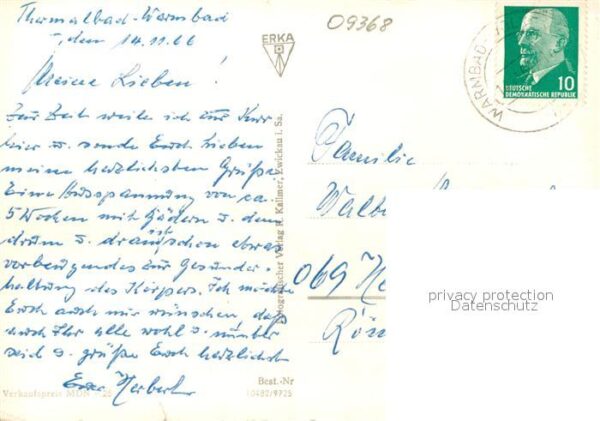 Thermalbad-Warmbad
, den 14.11.66
Meine Lieben!
Zur Zeit weile ich zur Kur
hier u. sende Euch Lieben
meine herzlichsten Grüße
Eine Ausspannung von ca.
5 Wochen mit Bädern u. dem
drum u. dran ist schon etwas
vorbeugendes zur Gesunder-
haltung des Körpers. Ich möchte
Euch auch mir wünschen, daß
auch Ihr alle wohl u. munter
seid u. grüße Euch herzlichst
Euer Herbert
Verkaufspreis MDN -,20
09368
ERKA
Fotografischer Verlag R. Kallmer, Zwickau i. Sa.
Best.-Nr
10482/9725
WARMBAD
10
DEUTSCHE
DEMOKRATISCHE REPUBLIK
Familie
Walb
069 He
Rön
privacy protection
Datenschutz